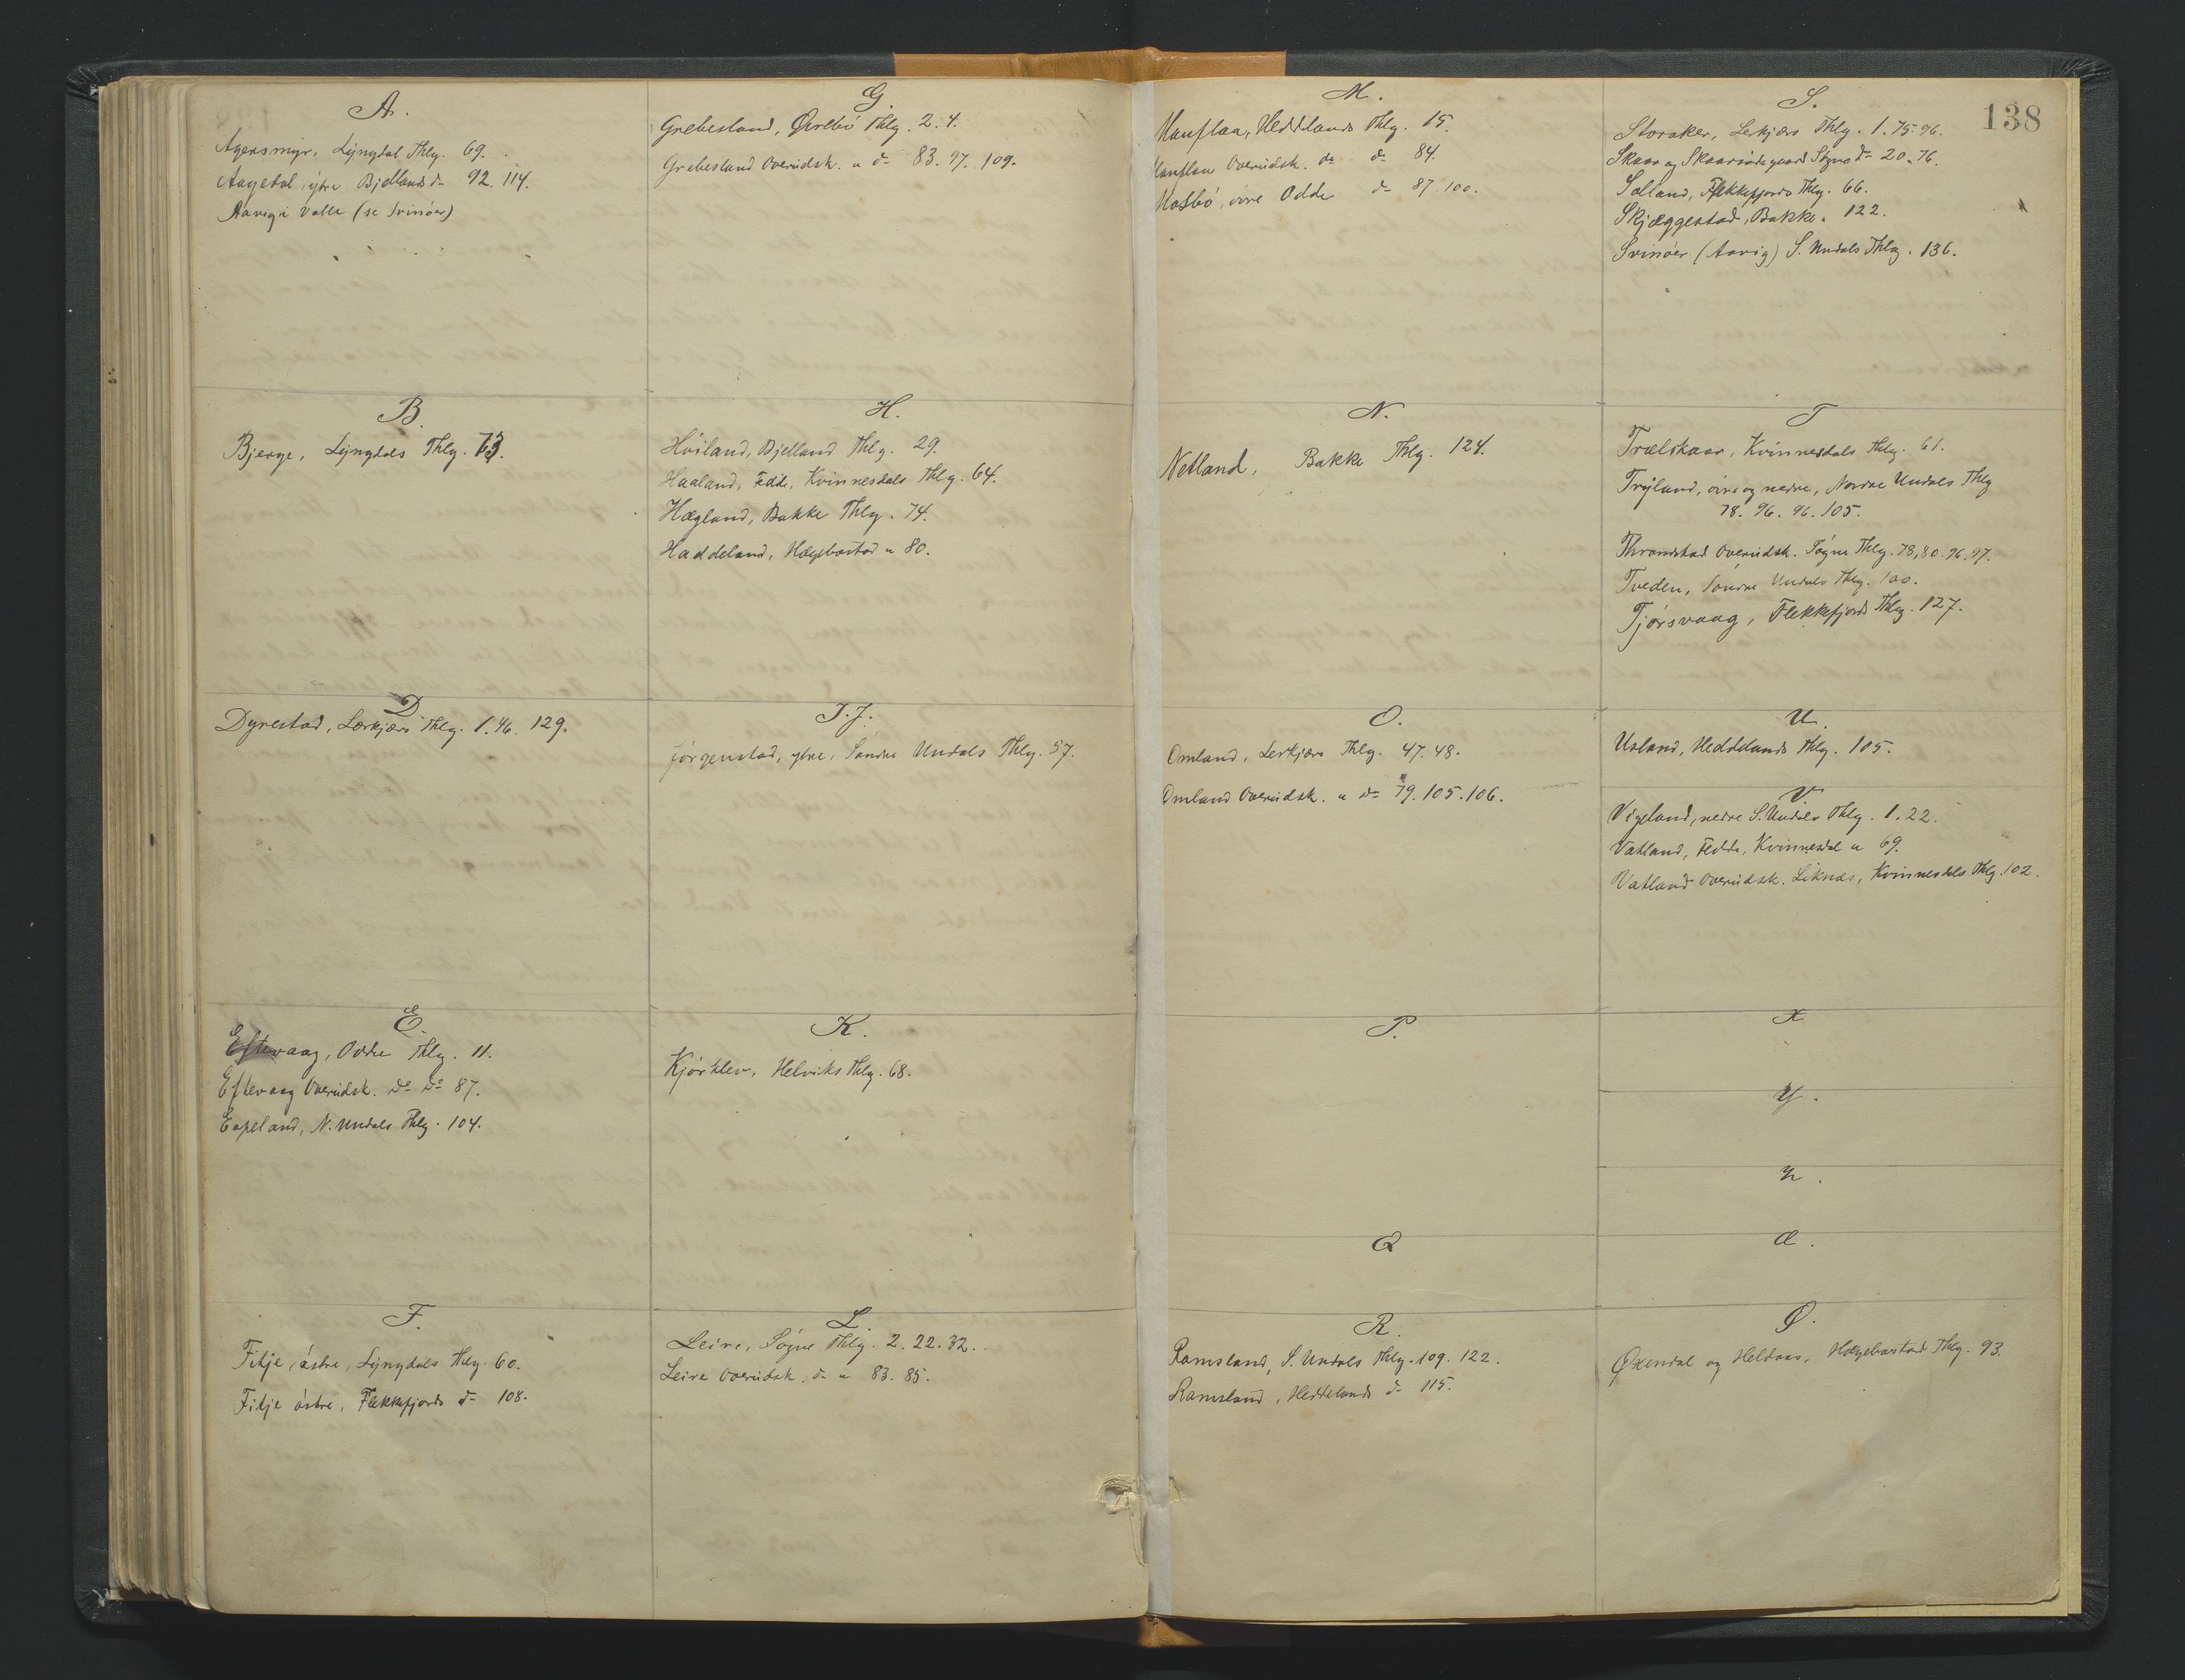 A.
Agersmyr, Lyngdal Thlg. 69.
Aagedal, ytre Bjellands d- 92. 114.
Aavig i Valle (se Svinøer)
B.
Bjerge, Lyngdals Thlg. 73.
D
Dyrestad, Lerkjærs Thlg. 1. 46. 129.
E.
Eftevaag, Oddre Thlg. 11.
Eftevaag Overudsk. do do 87.
Espeland, N. Undals Thlg. 104.
F.
Fitje, østre, Lyngdals Thlg. 60.
Fitje østre, Flekkefjords d- 108.
G.
Grebesland, Øvrebö Thlg. 2. 4.
Grebesland Overudsk. " d- 83. 97. 109.
H.
Höiland, Bjelland Thlg. 29.
Haaland, Fedde, Kvinnesdals Thlg. 64.
Hægland, Bakke Thlg. 74.
Haddeland, Hægebostad " 80.
I. J.
Jörgenstad, ytre, Söndre Undals Thlg. 57.
K.
Kjörklev, Helviks Thlg. 68.
L.
Leire, Sögne Thlg. 2. 22. 32.
Leire Overudsk. d- " 83. 85.
M.
Manflaa, Heddlands Thlg. 15.
Manflaa Overudsk. do d- 84.
Mosbö, övre Odde d- 87. 100.
N.
Netland, Bakke Thlg. 124.
O.
Omland, Lerkjærs Thlg. 47. 48.
Omland Overudsk. " d- 79. 105. 106.
P.
Q
R.
Ramsland, S. Undals Thlg. 109. 122.
Ramsland, Heddelands d- 115.
138
S.
Storaker, Lerkjærs Thlg. 1. 75. 96.
Skaar og Skaarsödegaard Sögne d- 20. 76.
Solland, Flekkefjords Thlg. 66.
Skjæggestad, Bakke " 122.
Svinöer (Aavig) S. Undals Thlg. 136.
T
Trælskaar, Kvinnesdals Thlg. 61.
Tryland, övre og nedre, Nordre Undals Thlg
78. 96. 96. 105.
Thronstad Overudsk. Sögne Thlg. 78, 80. 96. 97.
Tveden, Söndre Undals Thlg. 100.
Tjörsvaag, Flekkefjords Thlg. 127.
U.
Usland, Heddelands Thlg. 105.
V.
Vigeland, nedre S. Undals Thlg. 1. 22.
Vatland, Fedde, Kvinnesdal " 69.
Vatland Overudsk. Liknes, Kvinnesdals Thlg. 102.
X
Y.
Z.
Æ.
Ø.
Øxendal og Heldaas, Hægebostad Thlg. 93.